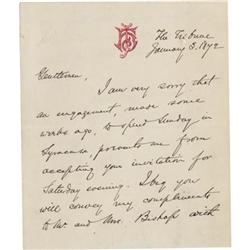 The Tribune
January 5. 1892
Gentlemen,
I am very sorry that
an engagement, made some
weeks ago, to spend Sunday in
Syracuse, prevents me from
accepting your invitation for
Saturday evening. I beg you
will convey my compliments
to Mr. and Mrs. Bishop with